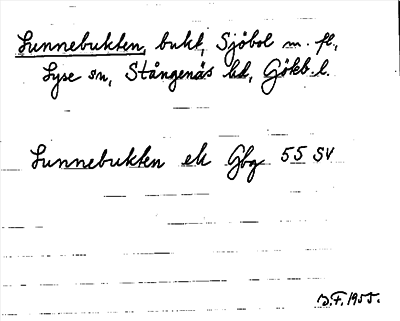 Sunnebukten, bukt, Sjöbol m. fl.,
Lyse sn, Stångenäs hd, Gökb. l.
Sunnebukten ek Gbg 55 SV
B.F. 1955.